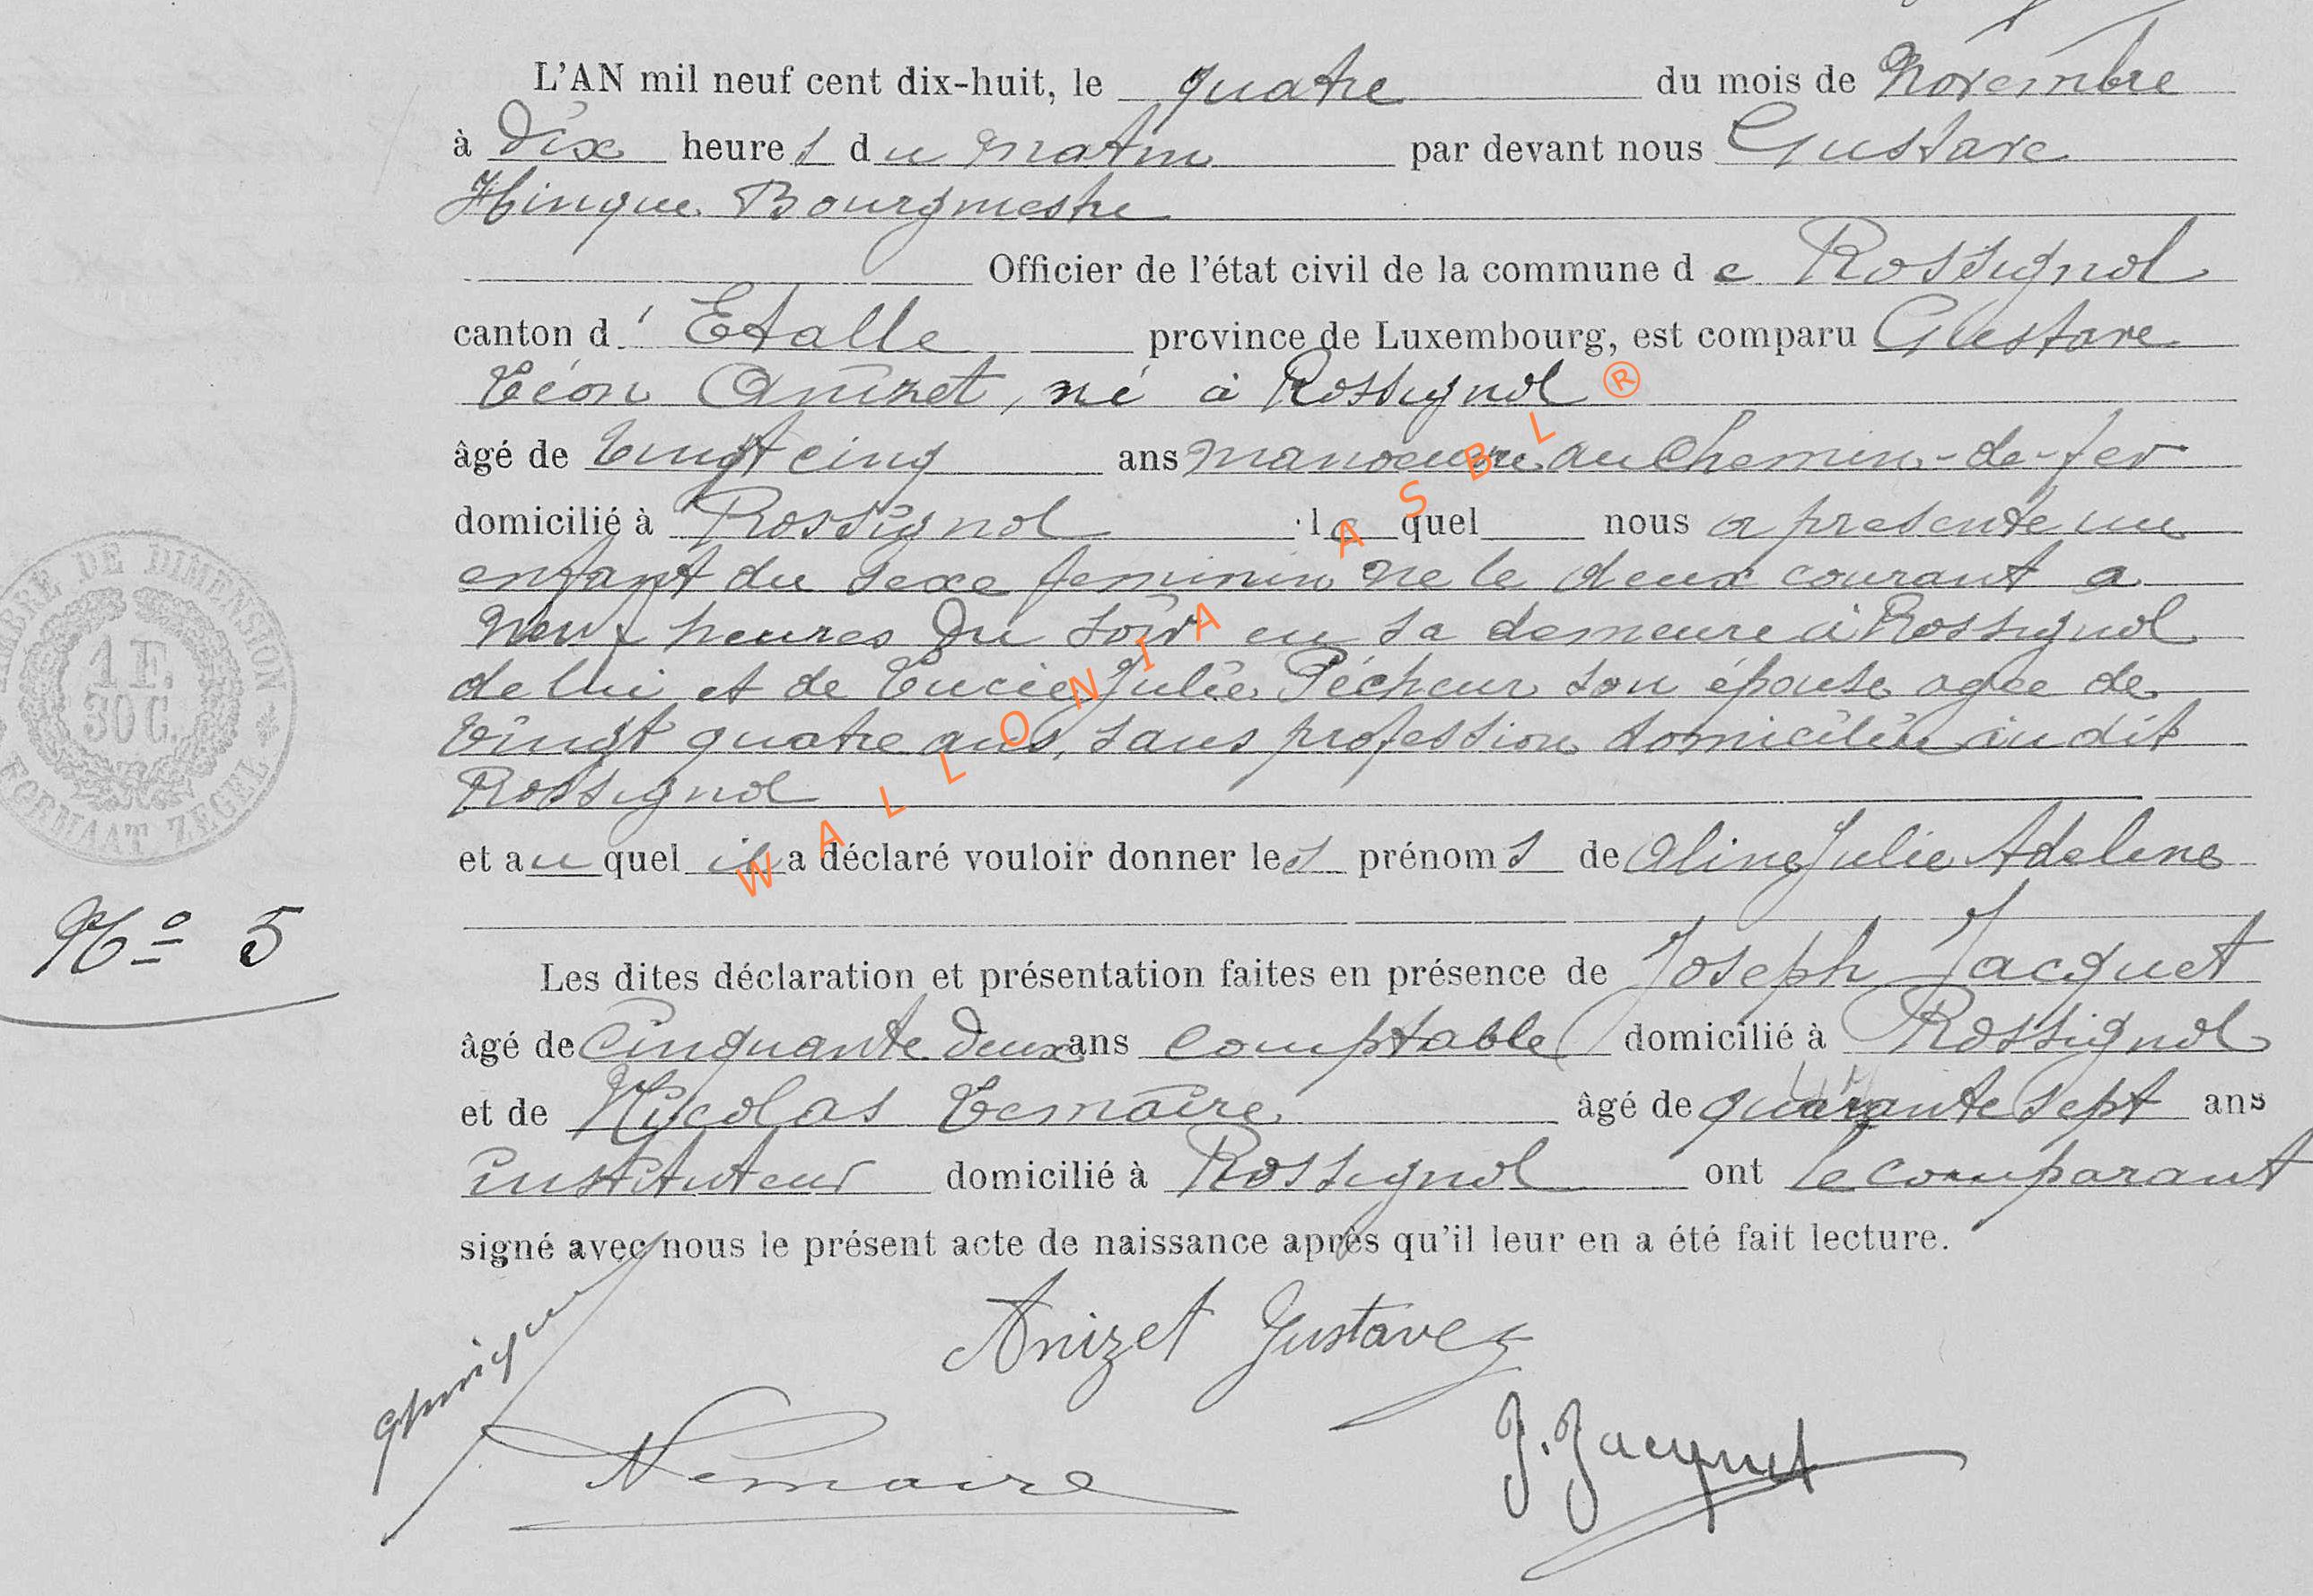 L'AN mil neuf cent dix-huit, le quatre du mois de Novembre
à Dix heures du matin par devant nous Gustave
Hinque Bourgmestre
Officier de l'état civil de la commune de Rossignol
canton d'Etalle province de Luxembourg, est comparu Gustave
Léon Anizet, né à Rossignol
âgé de Vingt cinq ans manoeuvre au chemin-de-fer
domicilié à Rossignol lequel nous a présenté un
enfant du sexe feminin ne le deux courant a
Neuf heures Du soir en sa demeure à Rossignol
de lui et de Lucie Julie Pécheur son épouse agée de
Vingt quatre ans, sans profession domiciliée au dit
Rossignol
et auquel il a déclaré vouloir donner les prénoms de Aline Julie Adeline
TIMBRE DE DIMENSION
1 F.
30 C.
ZEGEL
No 5
Les dites déclaration et présentation faites en présence de Joseph Jacquet
âgé de Cinquante Deux ans Comptable domicilié à Rossignol
et de Nicolas Lemaire âgé de quarante sept ans
instituteur domicilié à Rossignol ont le comparant
signé avec nous le présent acte de naissance après qu'il leur en a été fait lecture.
Anizet Gustave
GHinque
NLemaire
J. Jacquet
WALLONIA ASBL ®